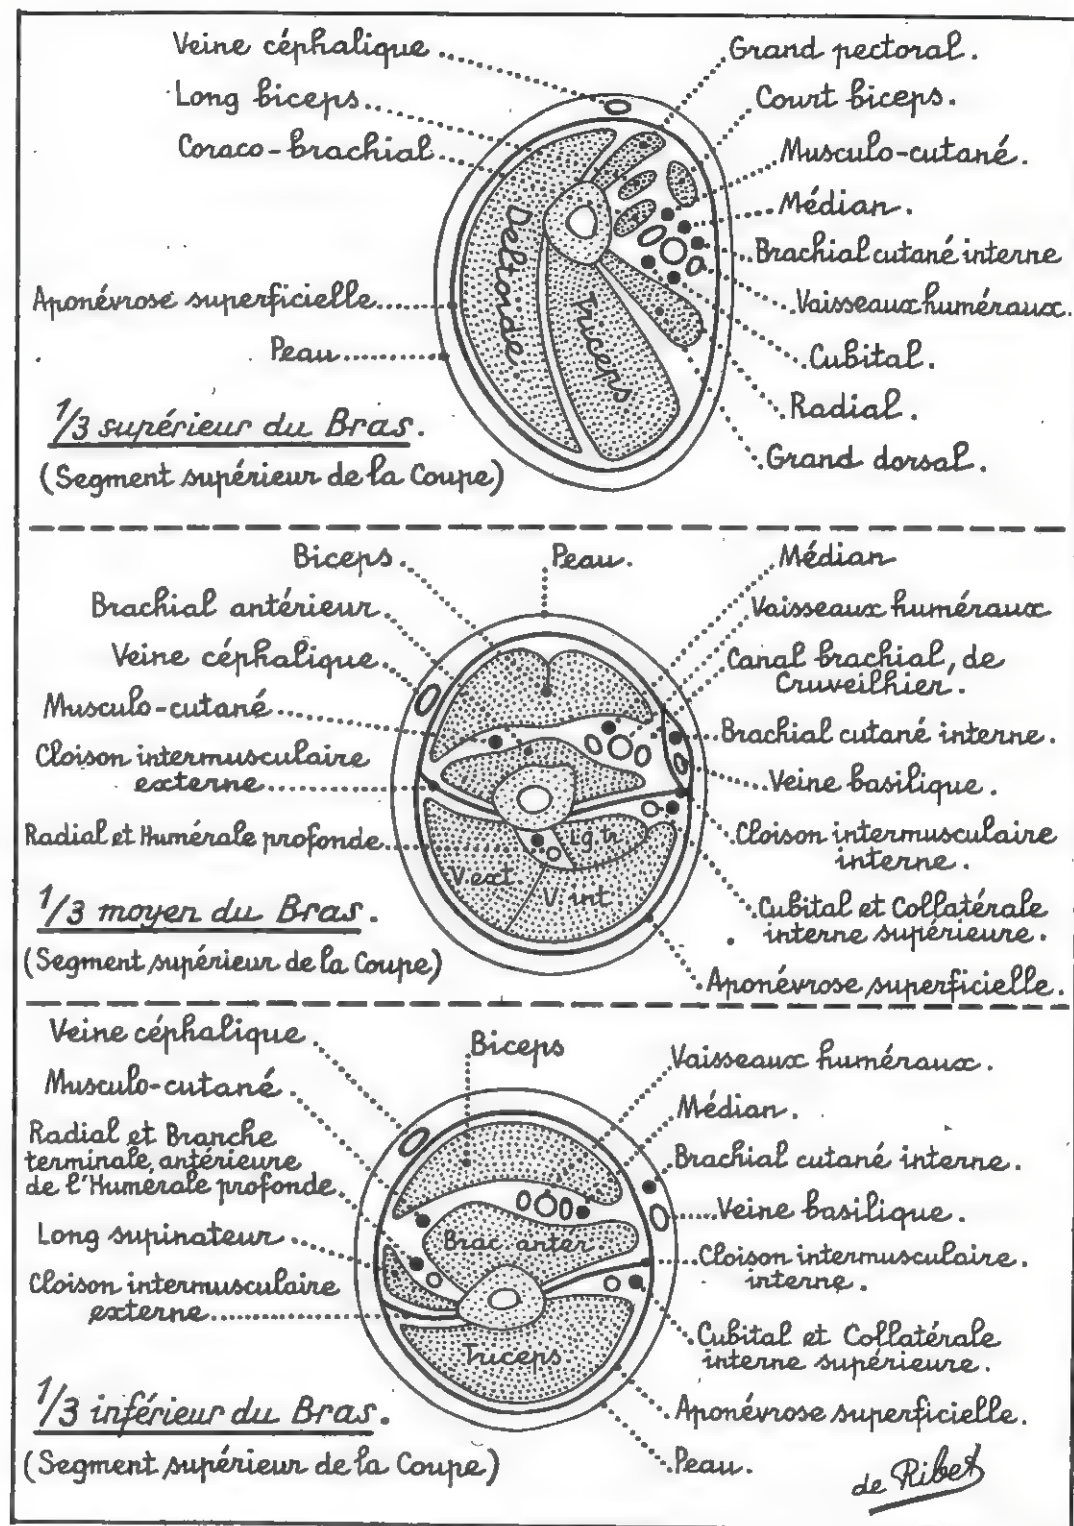 Veine céphalique
Long biceps.
Coraco-brachial
Aponévrose superficielle
Peau
1/3 supérieur du Bras.
(Segment supérieur de la Coupe)
Deltoïde
Triceps
Grand pectoral.
Court biceps.
Musculo-cutané.
Médian.
Brachial cutané interne
Vaisseaux huméraux.
Cubital.
Radial.
Grand dorsal.
Biceps
Peau.
Brachial antérieur
Veine céphalique
Musculo-cutané
Cloison intermusculaire
externe
Radial et Humérale profonde
1/3 moyen du Bras.
(Segment supérieur de la Coupe)
V. ext
Lg tr.
V. int
Médian
Vaisseaux huméraux
Canal brachial, de
Cruveilhier.
Brachial cutané interne.
Veine basilique.
Cloison intermusculaire
interne.
Cubital et Collatérale
interne supérieure.
Aponévrose superficielle.
Veine céphalique
Biceps
Musculo-cutané
Radial et Branche
terminale, antérieure
de l'Humérale profonde
Long supinateur
Cloison intermusculaire
externe
1/3 inférieur du Bras.
(Segment supérieur de la Coupe)
Brac anter
Triceps.
Vaisseaux huméraux.
Médian.
Brachial cutané interne.
Veine basilique.
Cloison intermusculaire.
interne.
Cubital et Collatérale
interne supérieure.
Aponévrose superficielle.
Peau.
de Ribet